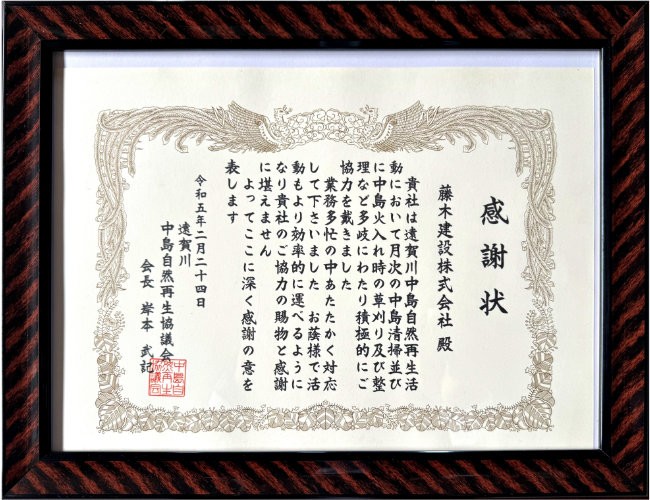 感謝状
藤木建設株式会社 殿
貴社は遠賀川中島自然再生活
動において月次の中島清掃並び
に中島火入れ時の草刈り及び整
理など多岐にわたり積極的にご
協力を戴きました
業務多忙の中あたたかく対応
して下さいました お蔭様で活
動もより効率的に運べるように
なり貴社のご協力の賜物と感謝
に堪えません
よってここに深く感謝の意を
表します
令和五年二月二十四日
遠賀川
中島自然再生協議会
会長 岸本 武記
中島自
然再生
協議会